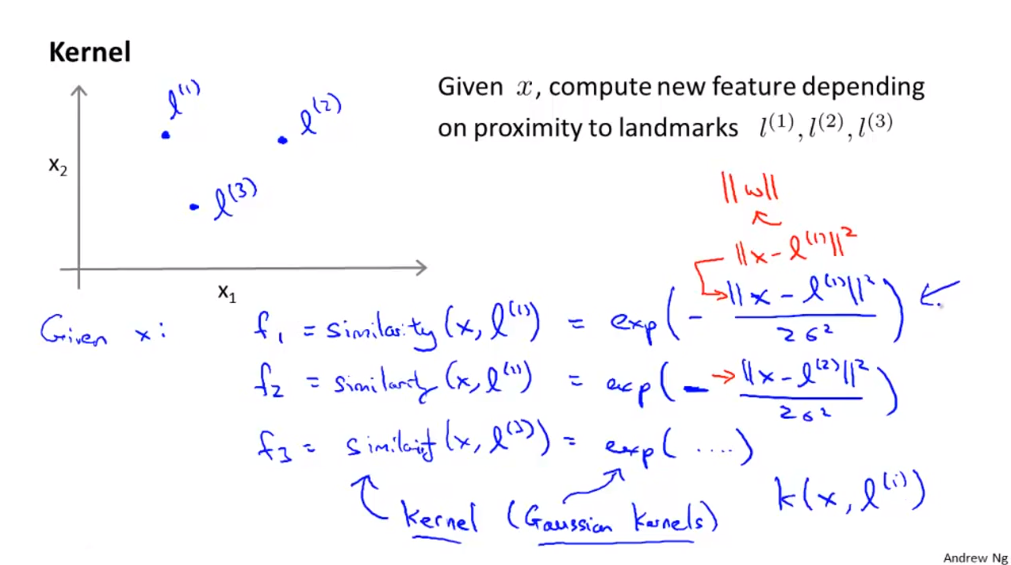 Kernel
l⁽¹⁾
l⁽²⁾
l⁽³⁾
x₂
x₁
Given x, compute new feature depending
on proximity to landmarks l⁽¹⁾, l⁽²⁾, l⁽³⁾
||w||
||x - l⁽¹⁾||²
Given x: f₁ = similarity(x, l⁽¹⁾) = exp(- ||x - l⁽¹⁾||² / 2σ²)
f₂ = similarity(x, l⁽¹⁾) = exp(- ||x - l⁽²⁾||² / 2σ²)
f₃ = similarity(x, l⁽³⁾) = exp(....)
kernel (Gaussian kernels)
k(x, l⁽ⁱ⁾)
Andrew Ng